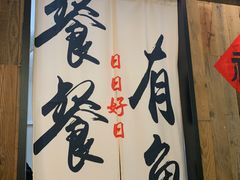 餐餐
日日好日
有魚